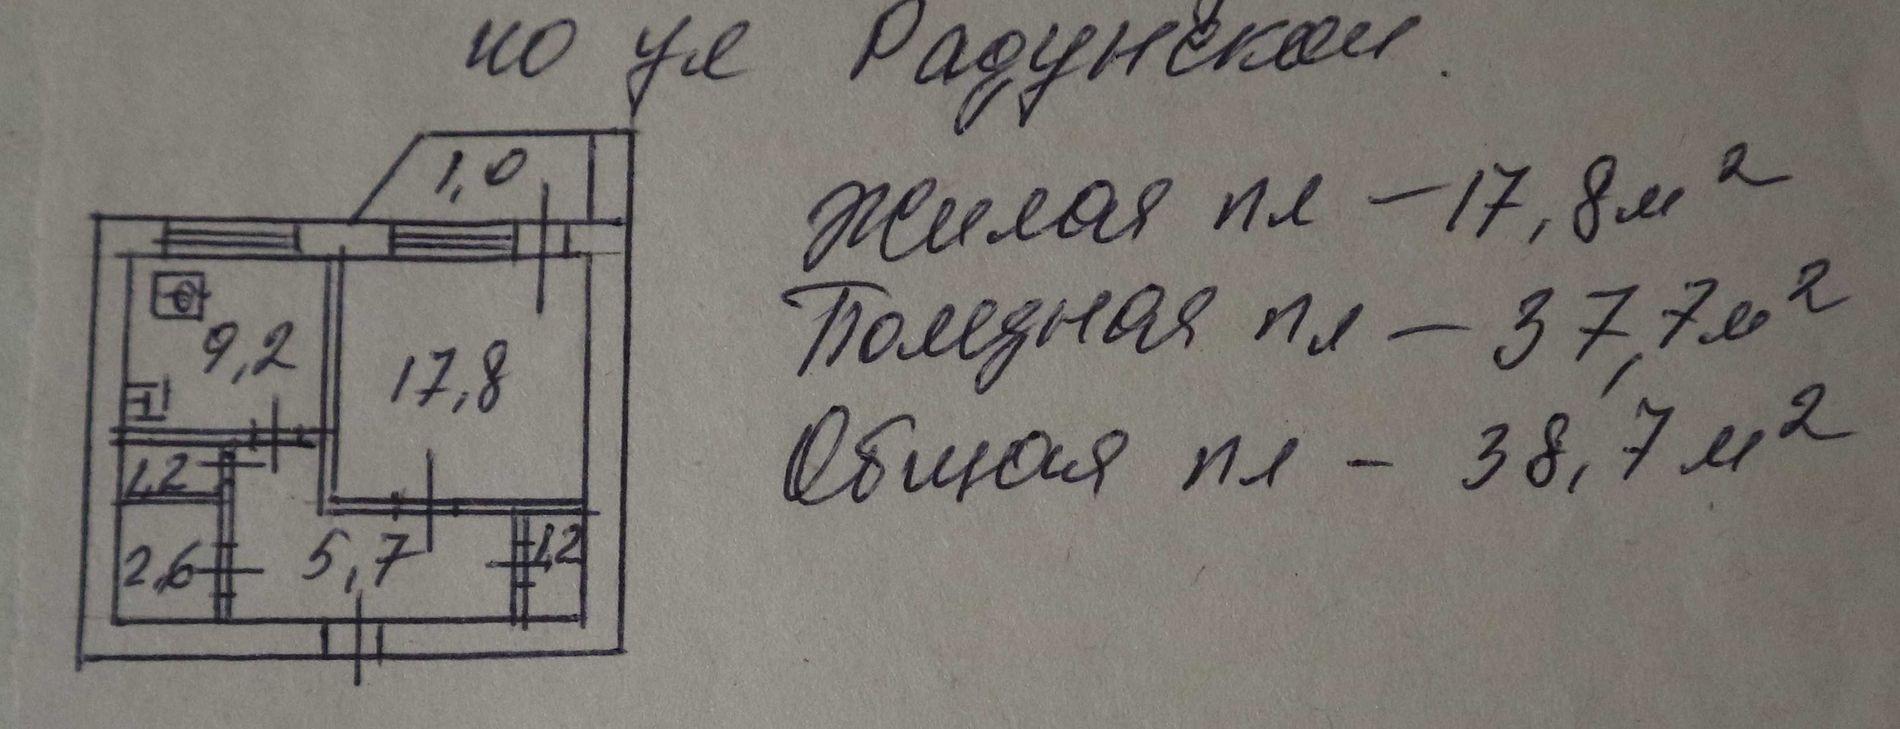 по ул Радунской.
1,0
Жилая пл – 17,8 м²
Полезная пл – 37,7 м²
9,2
17,8
Общая пл – 38,7 м²
1,2
2,6
5,7
1,2